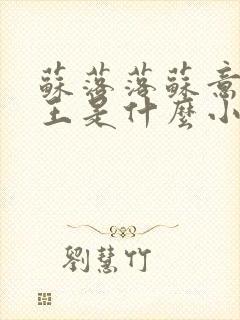 蘇落落蘇意
王是什麼小
劉慧竹